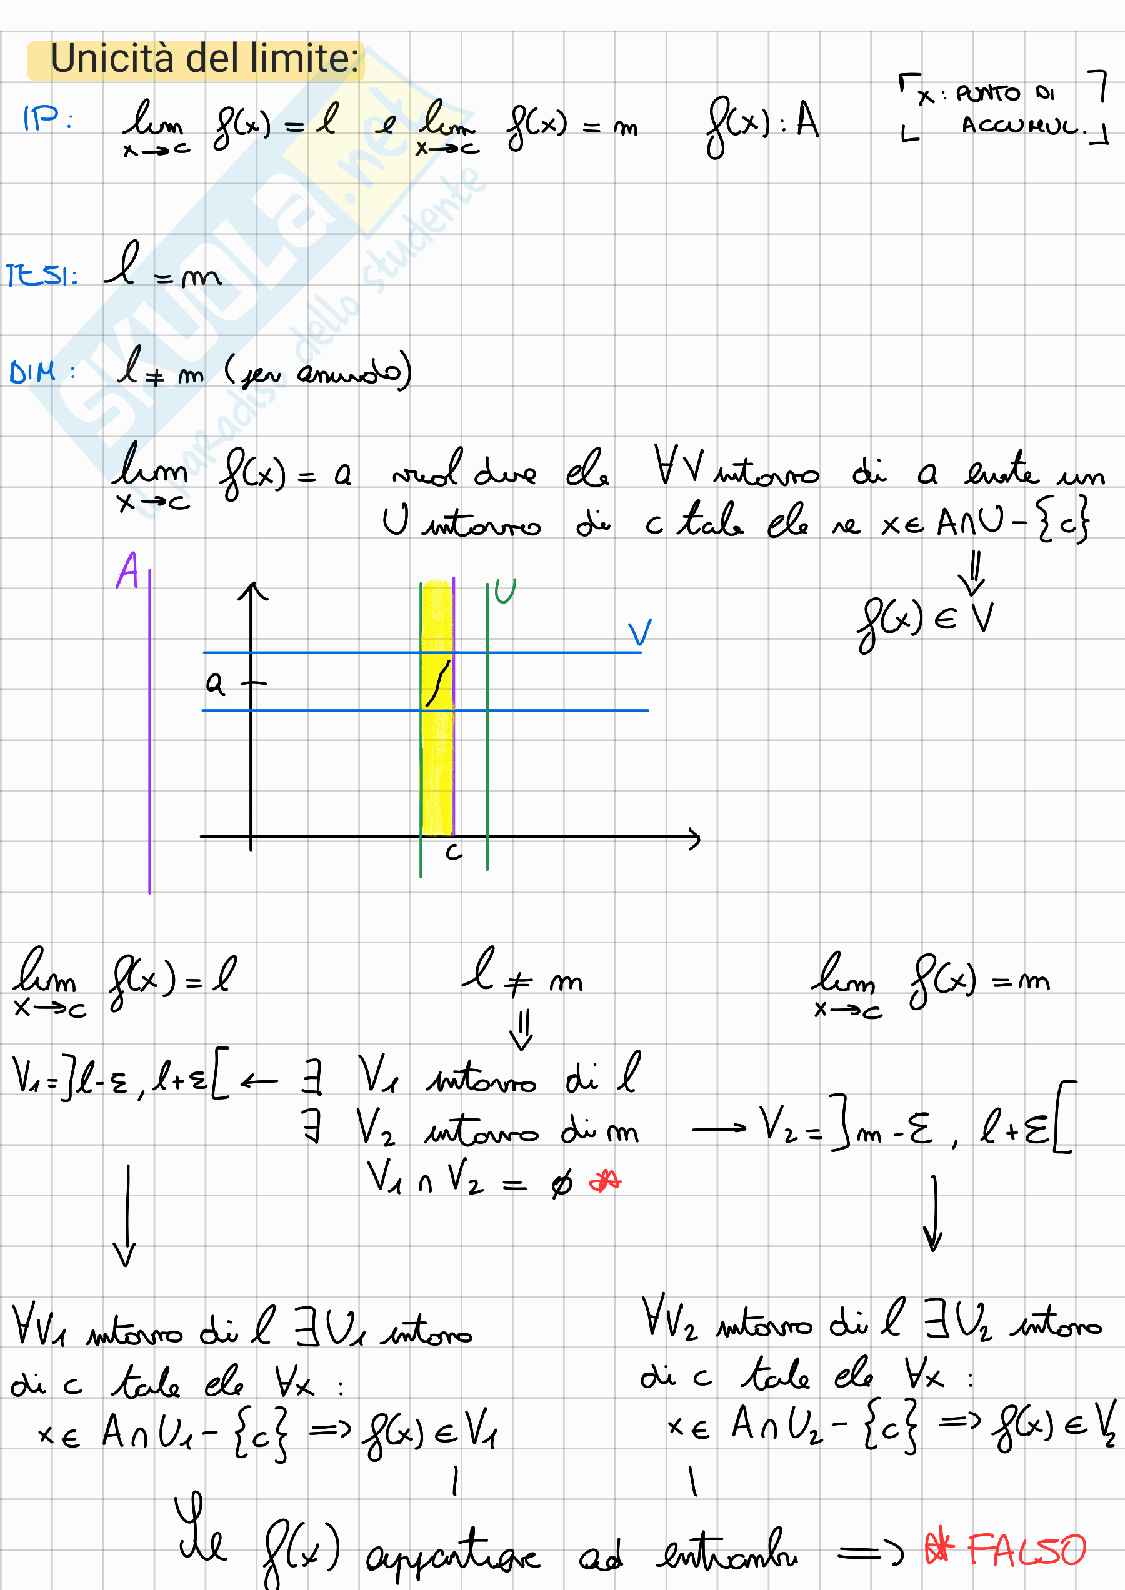 Unicità del limite:
IP: lim x→c f(x) = l e lim x→c f(x) = m f(x): A
[x: PUNTO DI ACCUMUL.]
TESI: l = m
DIM: l ≠ m (per assurdo)
lim x→c f(x) = a vuol dire che ∀V intorno di a esiste un
U intorno di c tale che se x∈ A∩U-{c}
⇓
f(x) ∈ V
A
U
V
a
c
lim x→c f(x) = l l ≠ m lim x→c f(x) = m
⇓
V1=]l-ε, l+ε[ ← ∃ V1 intorno di l
∃ V2 intorno di m → V2 = ]m-ε, l+ε[
V1 ∩ V2 = ∅ *
∀V1 intorno di l ∃U1 intorno
di c tale che ∀x :
x∈ A∩U1-{c} => f(x) ∈ V1
∀V2 intorno di l ∃U2 intorno
di c tale che ∀x :
x∈ A∩U2-{c} => f(x) ∈ V2
Se f(x) appartiene ad entrambi => * FALSO
SKUOLA.net
il paradiso dello studente